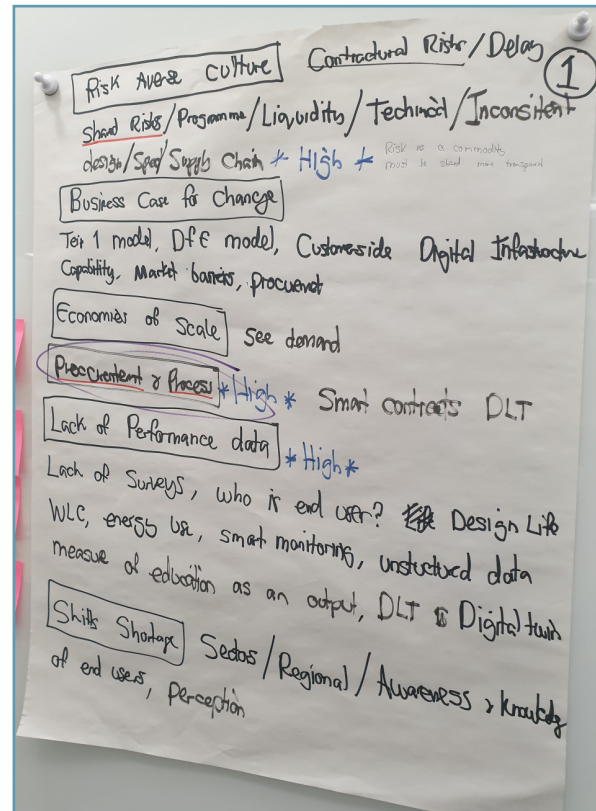 Risk Averse Culture Contractural Risks/Delay
1
Shared Risks/Programme/Liquidity/Technical/Inconsitent
design/Spec/Supply Chain * High * Risk is a commodity
must be shared more transparent
Business Case for Change
Teir 1 model, DfE model, Customerside Digital Infastructure
Capability, Market barriers, procurement
Economies of Scale See demand
Proccurement & Process * High * Smart contracts DLT
Lack of Performance data * High *
Lack of Surveys, who is end user? Design Life
WLC, energy use, smart monitoring, unstuctured data
measure of education as an output, DLT Digital twin
Skills Shortage Sectors/Regional/Awareness & knowledg
of end users, perception